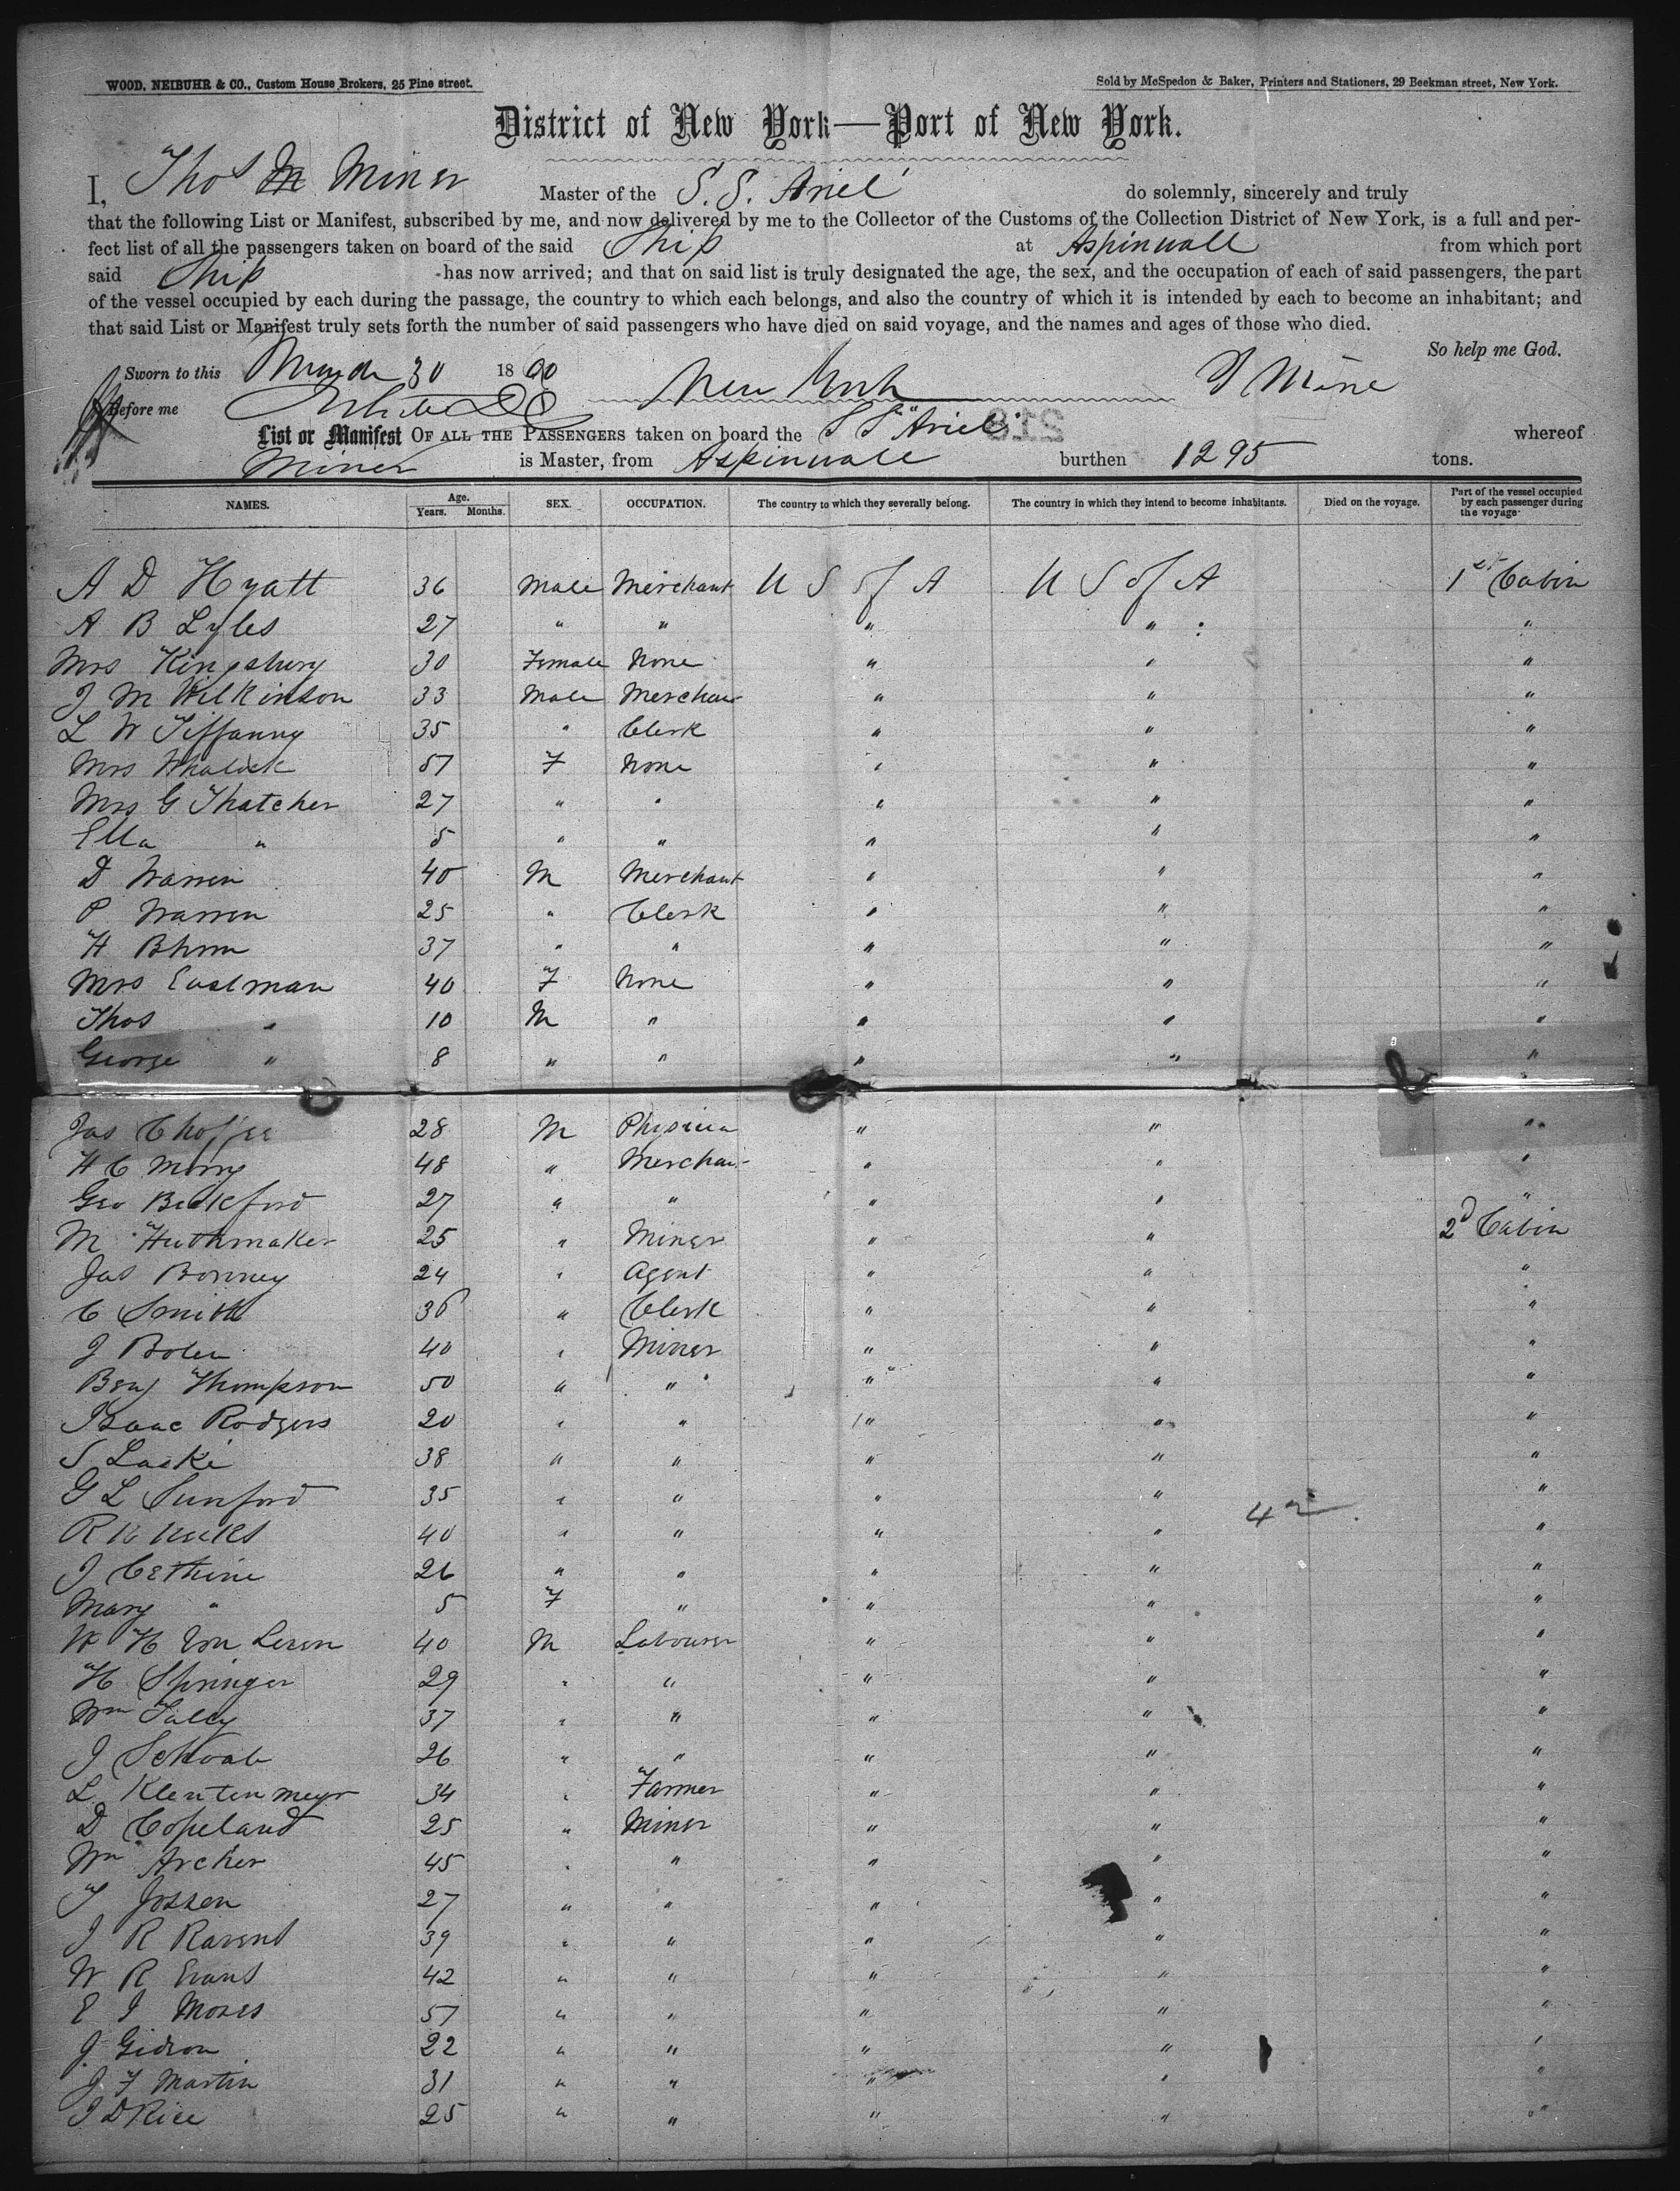 WOOD, NEIBUHR & CO., Custom House Brokers, 25 Pine street.
Sold by McSpedon & Baker, Printers and Stationers, 29 Beekman street, New York.
District of New York—Port of New York.
I, Thos M Miner Master of the S. S. Ariel do solemnly, sincerely and truly
that the following List or Manifest, subscribed by me, and now delivered by me to the Collector of the Customs of the Collection District of New York, is a full and per-
fect list of all the passengers taken on board of the said Ship at Aspinwall from which port
said Ship has now arrived; and that on said list is truly designated the age, the sex, and the occupation of each of said passengers, the part
of the vessel occupied by each during the passage, the country to which each belongs, and also the country of which it is intended by each to become an inhabitant; and
that said List or Manifest truly sets forth the number of said passengers who have died on said voyage, and the names and ages of those who died.
So help me God.
Sworn to this March 30 1860 New York
Before me
List or Manifest OF ALL THE PASSENGERS taken on board the S S "Ariel" whereof
Miner is Master, from Aspinwall burthen 1295 tons.
218
NAMES. Age. Years. Months. SEX. OCCUPATION. The country to which they severally belong. The country in which they intend to become inhabitants. Died on the voyage. Part of the vessel occupied by each passenger during the voyage
A D Hyatt 36 Male Merchant U S of A U S of A 1st Cabin
A B Lyles 27 " " " " "
Mrs Kingsbury 30 Female None " " "
J M Wilkinson 33 Male Merchan " " "
L W Tiffanny 35 " Clerk " " "
Mrs 57 F None " " "
Mrs G Thatcher 27 " " " " "
Ella " 5 " " " " "
D Warren 40 M Merchant " " "
P Warren 25 " Clerk " " "
H 37 " " " " "
Mrs Eastman 40 F None " " "
Thos " 10 M " " " "
George " 8 " " " " "
Jas 28 M " " "
H C 48 " Merchan " " "
Geo Beckford 27 " " " " "
M Huthmaker 25 " Miner " " 2d Cabin
Jas Bonney 24 " Agent " " "
C Smith 36 " Clerk " " "
J Bolen 40 " Miner " " "
Benj Thompson 50 " " " " "
Isaac Rodgers 20 " " " " "
S Laski 38 " " " " "
G L Sunford 35 " " " " "
42
R 40 " " " " "
J 26 " " " " "
Mary " 5 F " " " "
W H Von 40 M Labourer " " "
H Springer 29 " " " " "
Wm 37 " " " " "
J Schwab 26 " " " " "
L Klentenmeyr 34 " Farmer " " "
D Copeland 25 " Miner " " "
Wm Archer 45 " " " " "
T 27 " " " " "
J R 39 " " " " "
W R Evans 42 " " " " "
E I Moses 57 " " " " "
J Gidson 22 " " " " "
J F Martin 31 " " " " "
J D Rice 25 " " " " "